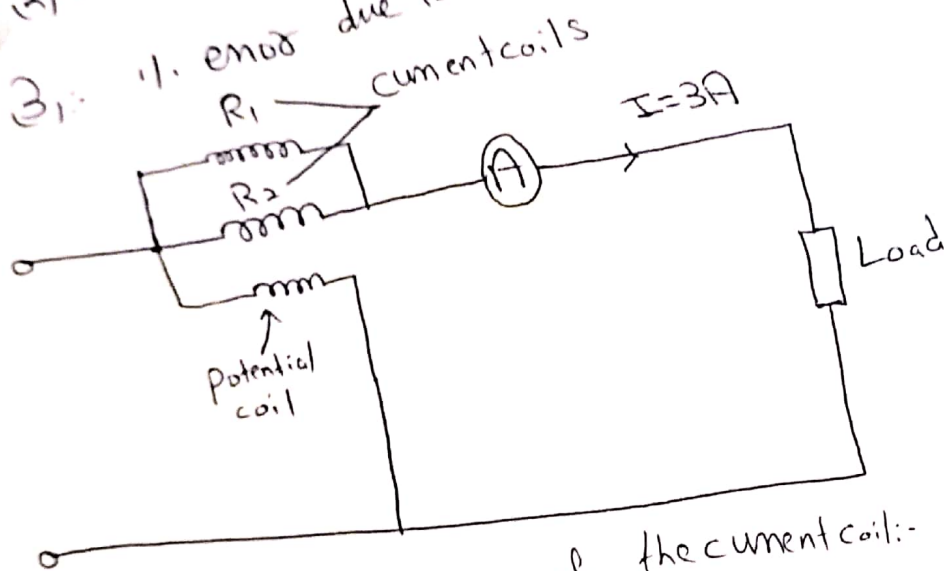 3. % error due
current coils
R1
I=3A
R2
A
Load
Potential
coil
the current coil:-